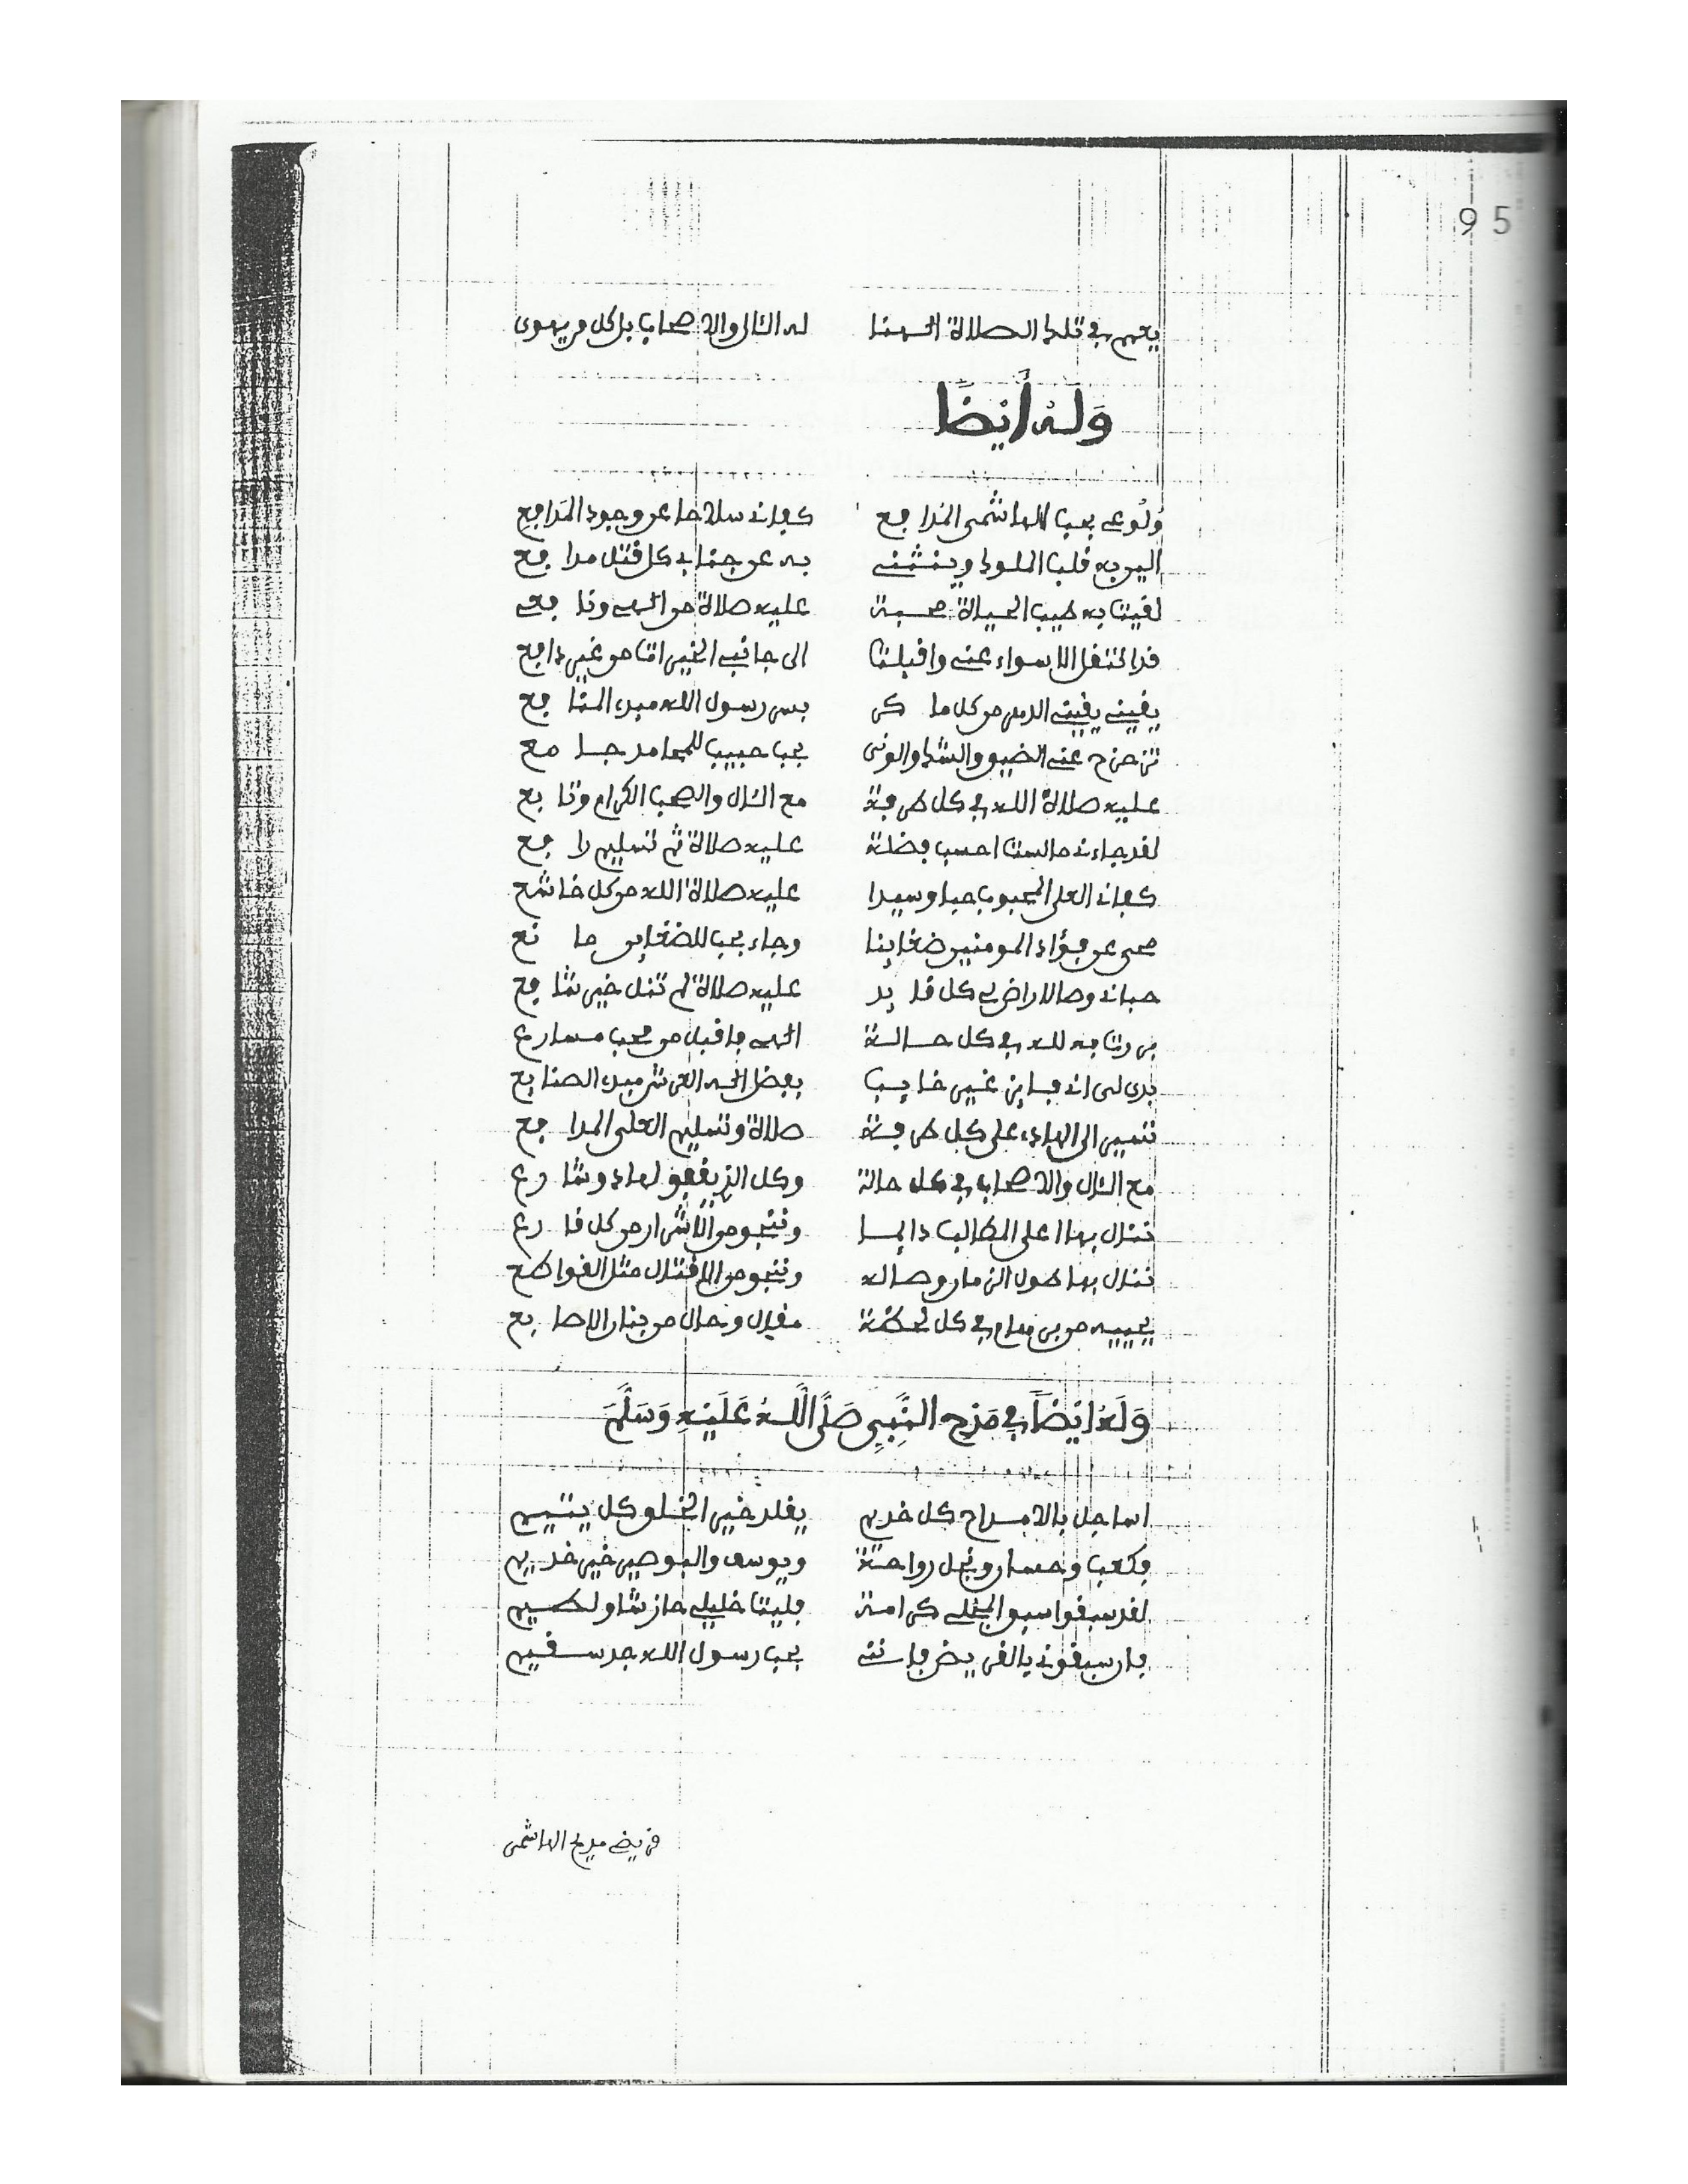 95
يعم في تلك الصلاة الهنا له الئال والاصحاب بل كل من يهوى
وَلَهُ أَيْضًا
وُلُوعي بحب الهاشمي المُدافع كفاني سلاحا عن وجود المَدافع
الين به قلب الملوك وينثني به عن جنابي كل قتل مدافع
لقينا به طيب الحياة محبة عليه صلاة من الهي ونافع
قد انتقل الاسواء عني واقبلت الى جانب الخير اتا من غير دافع
يقيني يقيني الدهر من كل ما كر بسر رسول الله مبد المنافع
تزحزح عني الضيق والشك والونى بحب حبيب للمحامد جامع
عليه صلاة الله في كل طرفة مع الئال والصحب الكرام وتابع
لقد جاءني ما لست احسب فضلة عليه صلاة ثم تسليم رافع
كفاني العلي المحبوب حبا وسيدا عليه صلاة الله من كل خاشع
محى عن فؤاد المومنين ضغاينا وجاء بحب للضغاين مانع
حباني وصال اراضي كل قايد عليه صلاة لم تنل خير شافع
بررنا به لله في كل حالة الهي فاقبل من محب مسارع
بدى لي اني فايز غير خايب بفضل اله العرش مبد الصنايع
تسير الى الهادي على كل طرفة صلاة وتسليم العلي المدافع
مع الئال والاصحاب في كل حالة وكل الذي يقفو لهاد وشارع
ننال بها اعلى المطالب دايما وننجو من الاشرار من كل قارع
ننال بها طول الزمان وصاله وننجو من الاقتال مثل القواطع
يجيبه من بر فهام في كل لحظة مقال وحال من بنان الاصابع
وَلَهُ اَيْضًا فِي مَدْحِ النَّبِيِّ صَلَّى اللَّهُ عَلَيْهِ وَسَلَّمَ
اساجل بالامداح كل خديم يقلد خير الخلق كل يتيم
فكعب وحسان ونجل رواحة ويوسف والبوصير خير خديم
لقد سبقوا سبق المجلي كرامة فليت خليلي حاز شاو لطيم
فان سبقوني بالقريض فانني بحب رسول الله جد سقيم
قريضي مديح الهاشمي